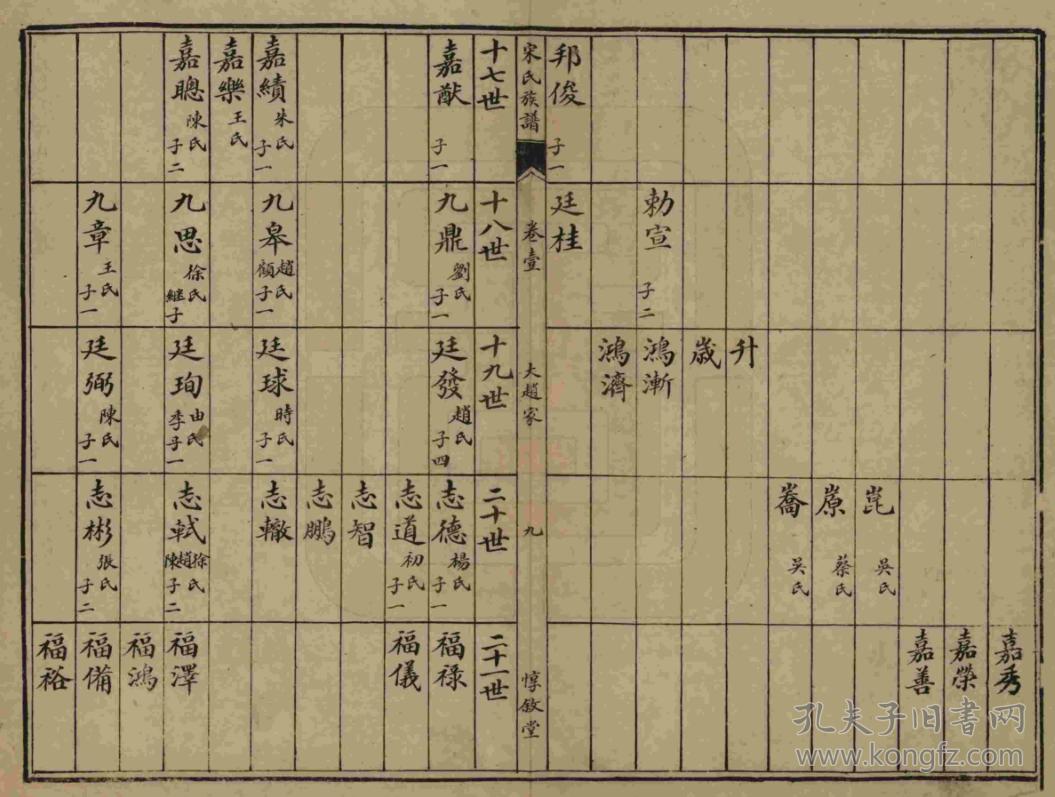 嘉秀
嘉榮
嘉善
崑 吳氏
原 蔡氏
喬 吳氏
升
歲
勅宣 子二
鴻漸
鴻濟
邦俊 子一
廷桂
宋氏族譜
卷壹
大趙家
九
惇敘堂
十七世
十八世
十九世
二十世
二十一世
嘉猷 子一
九鼎 劉氏 子一
廷發 趙氏 子四
志德 楊氏 子一
福祿
志道 初氏 子一
福儀
志智
志鵬
嘉績 朱氏 子一
九皋 趙氏 顧 子一
廷球 時氏 子一
志轍
嘉樂 王氏
嘉聰 陳氏 子二
九思 徐氏 繼子
廷珣 由氏 李 子一
志軾 徐氏 趙 陳 子二
福澤
福鴻
九章 王氏 子一
廷弼 陳氏 子一
志彬 張氏 子二
福備
福裕
孔夫子旧书网
www.kongfz.com